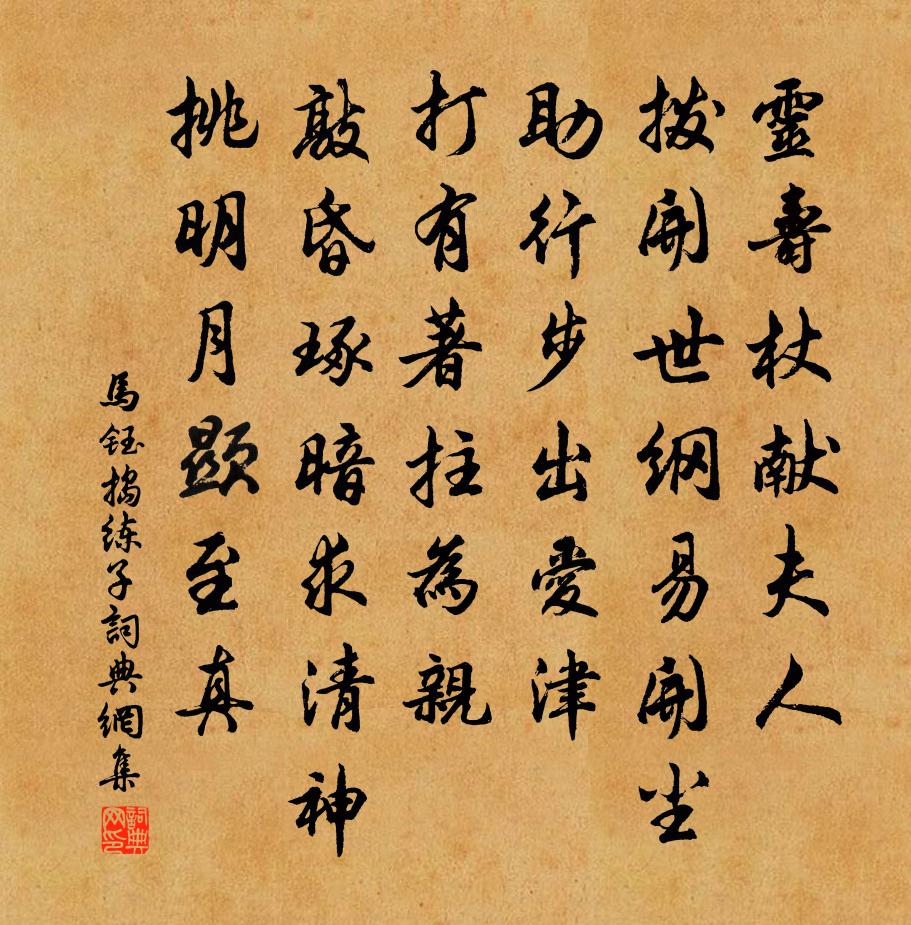 靈壽杖献夫人
拨開世網易開尘
助行步出愛津
打有著拄為親
敲昏琢暗求清神
挑明月顕至真
馬鈺搗練子詞典網集
詞典网印